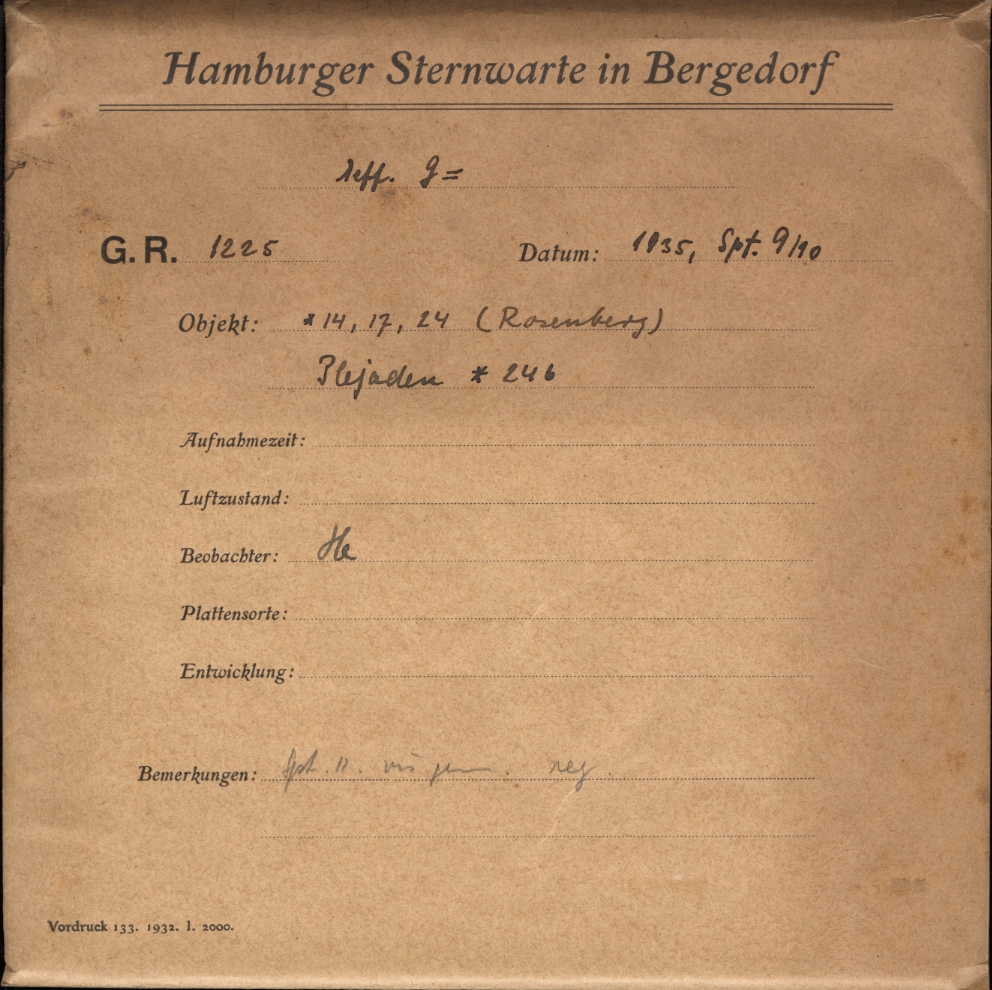 Hamburger Sternwarte in Bergedorf
G.R. 1225 Datum: 1935, Spt. 9/10
Objekt: *14, 17, 24 (Rosenberg)
Plejaden * 246
Aufnahmezeit:
Luftzustand:
Beobachter: He
Plattensorte:
Entwicklung:
Bemerkungen: reg.
Vordruck 133. 1932. I. 2000.